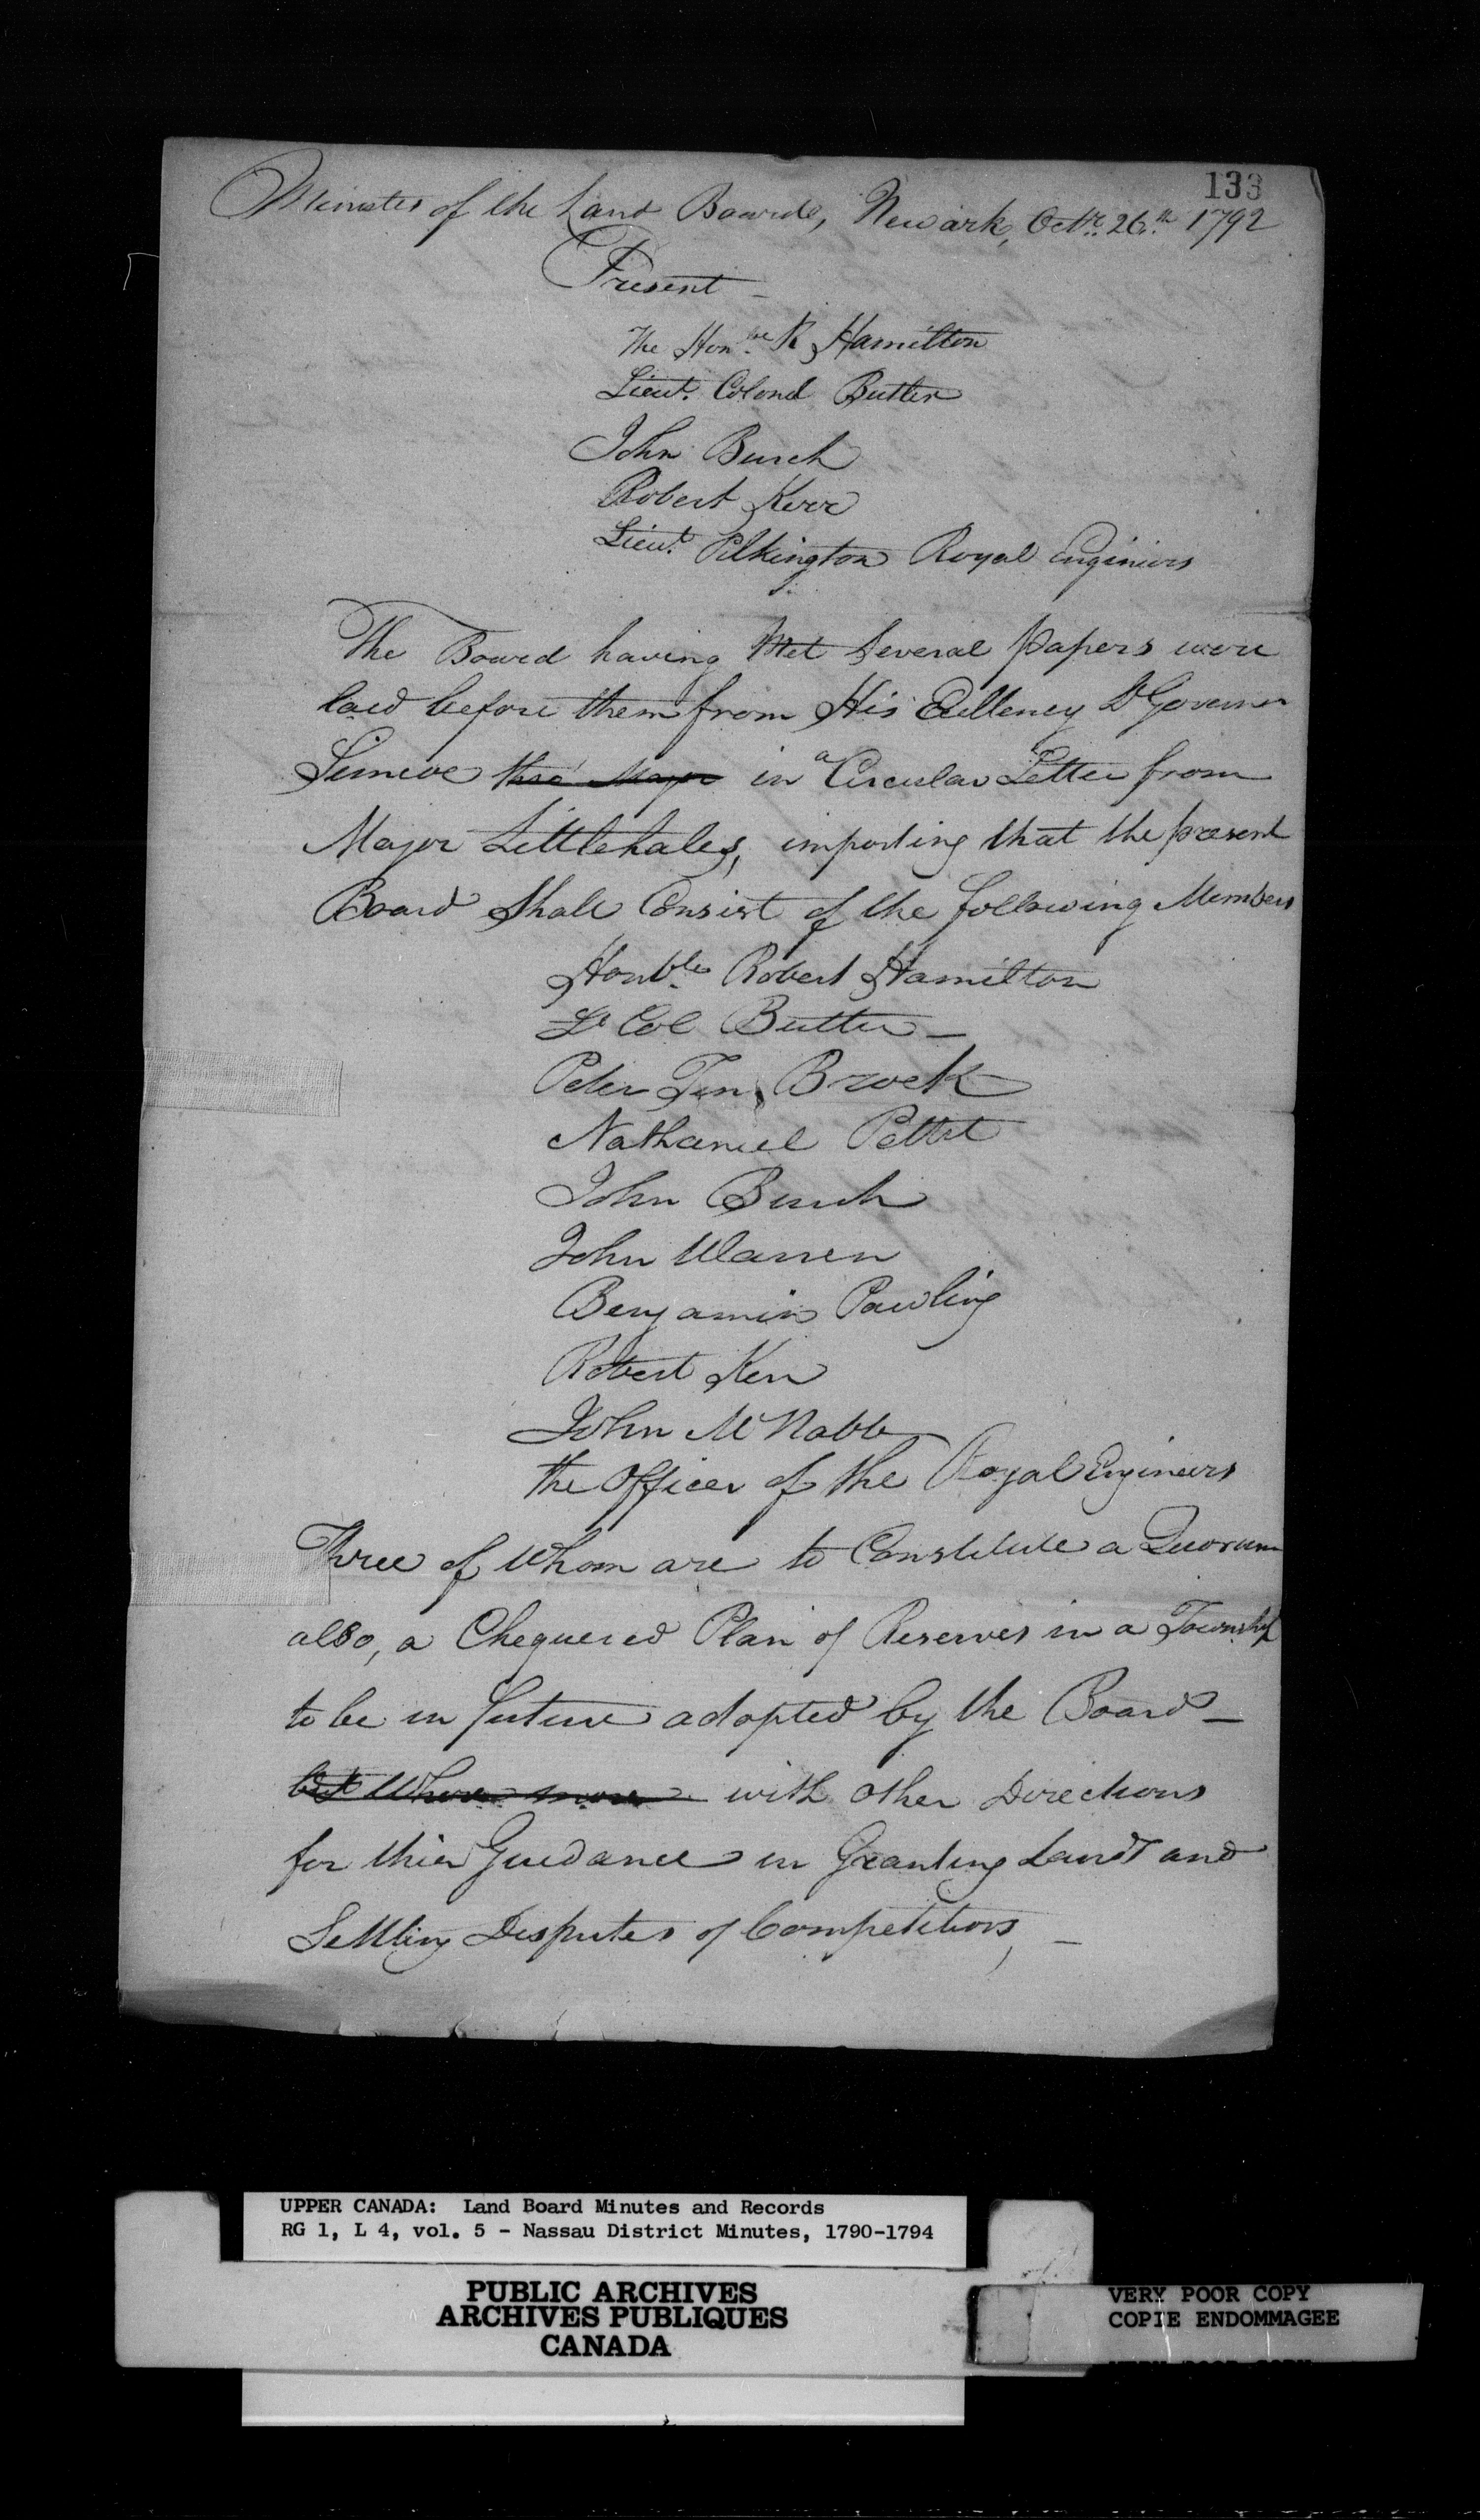 133
Minutes of the Land Board, Newark, Octr. 26th 1792
Present
The Honble R Hamilton
Lieut. Colonel Butler
John Burch
Robert Kerr
Lieut. Pilkington Royal Engineers
The Board having Met Several Papers were
laid before them from His Exllency Lt Governor
Simcoe in a Circular Letter from
Major Littlehales, importing that the present
Board Shall Consist of the following Members
Honble Robert Hamilton
Lt Col Butler
Peter Ten Broek
Nathaniel Pettit
John Burch
John Warren
Benjamin Pawling
Robert Kerr
John McNabb
the Officer of the Royal Engineers
Three of Whom are to Constitute a Quorum
also, a Chequered Plan of Reserves in a Township
to be in future adopted by the Board
with other Directions
for thier Guidance in Granting Lands and
Settling Disputes of Competitors,
UPPER CANADA: Land Board Minutes and Records
RG 1, L 4, vol. 5 - Nassau District Minutes, 1790-1794
PUBLIC ARCHIVES
ARCHIVES PUBLIQUES
CANADA
VERY POOR COPY
COPIE ENDOMMAGEE